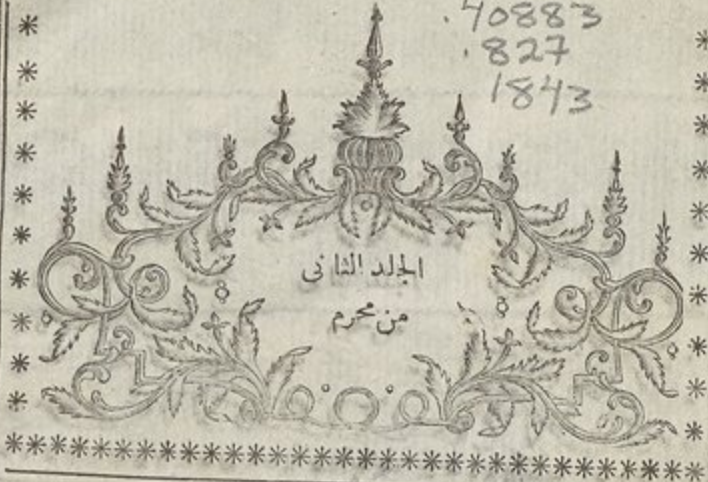 .40883
.827
1843
الجلد الثانى
من محرم